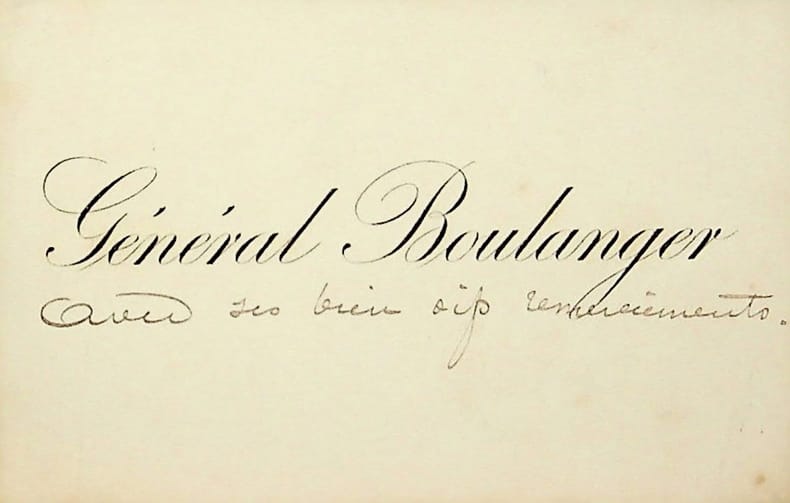 Général Boulanger
avec ses bien vifs remerciements.